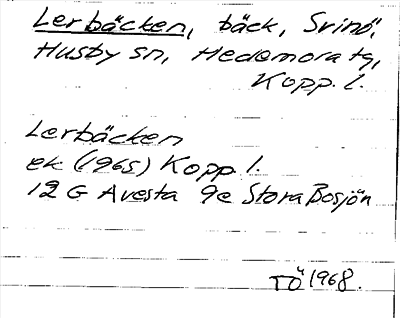 Lerbäcken, bäck, Svinö,
Husby sn, Hedemora tg,
Kopp. l.
Lerbäcken
ek (1965) Kopp l.
12 G Avesta 9e Stora Bosjön
TÖ 1968.